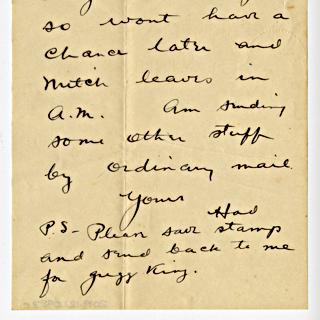 so wont have a
chance later and
Mitch leaves in
A.M. Am sending
some other stuff
by ordinary mail.
Yours
Had
P.S- Please save stamps
and send back to me
for gregg King.